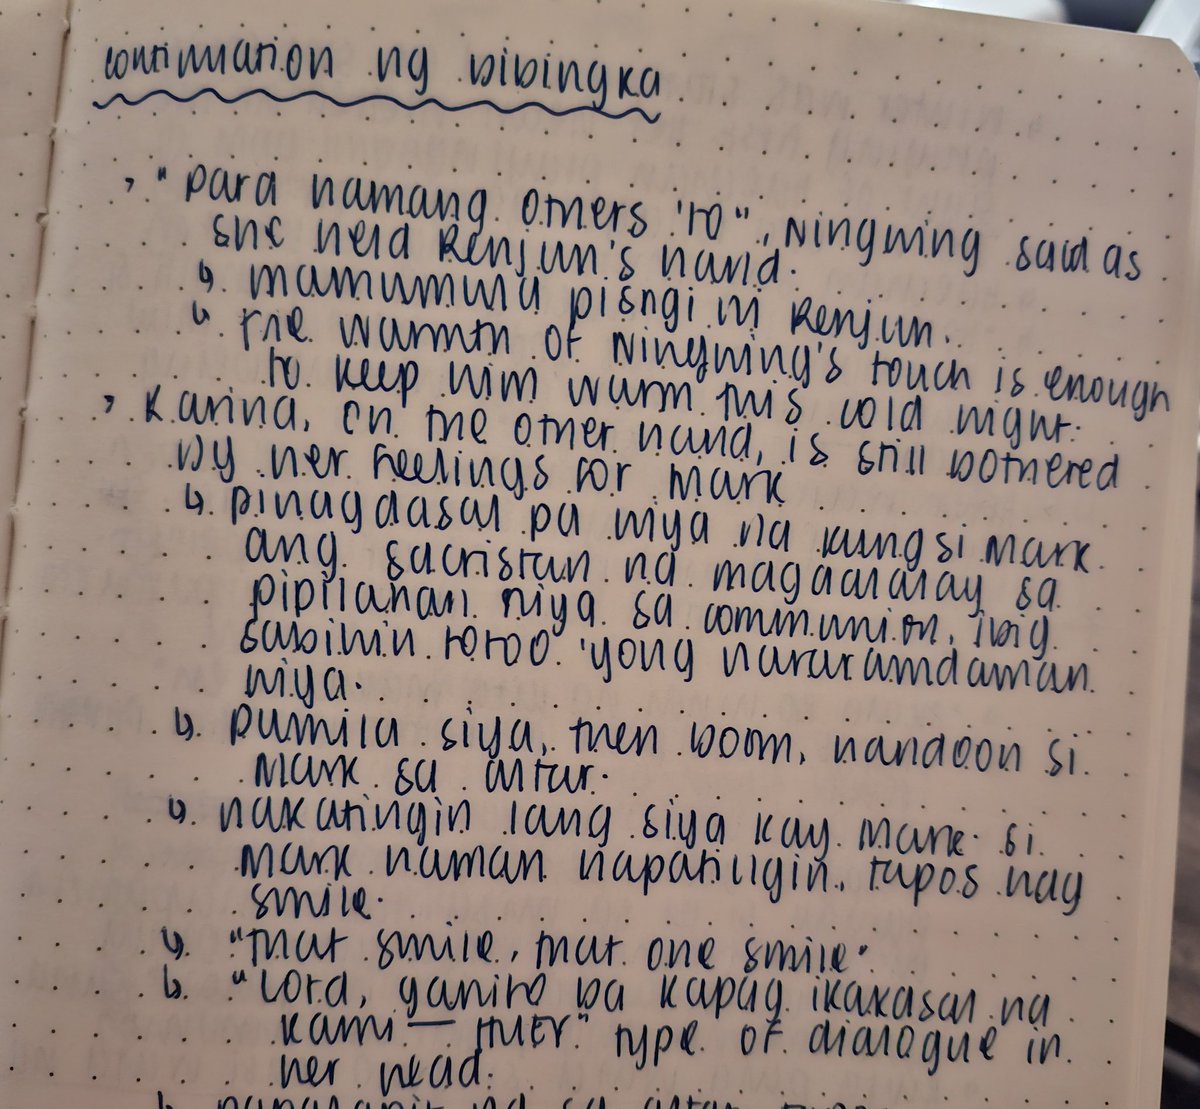 continuation ng bibingka
, "para namang others 'to", Ningning said as
she held Renjun's hand.
↳ mamumula pisngi ni Renjun.
↳ The warmth of Ningning's touch is enough
to keep him warm this cold night.
, Karina, on the other hand, is still bothered
by her feelings for Mark
↳ pinagdasal pa niya na kung si Mark
ang sacristan na magaalalay sa
pipilahan niya sa communion, ibig
sabihin totoo 'yong nararamdaman
niya.
↳ pumila siya, then boom, nandoon si
Mark sa altar.
↳ nakatingin lang siya kay Mark. si
Mark naman napatingin, tapos nag
smile.
↳ "that smile, that one smile"
↳ "Lord, ganito ba kapag ikakasal na
kami — HUER" type of dialogue in
her head.
↳ na sa altar